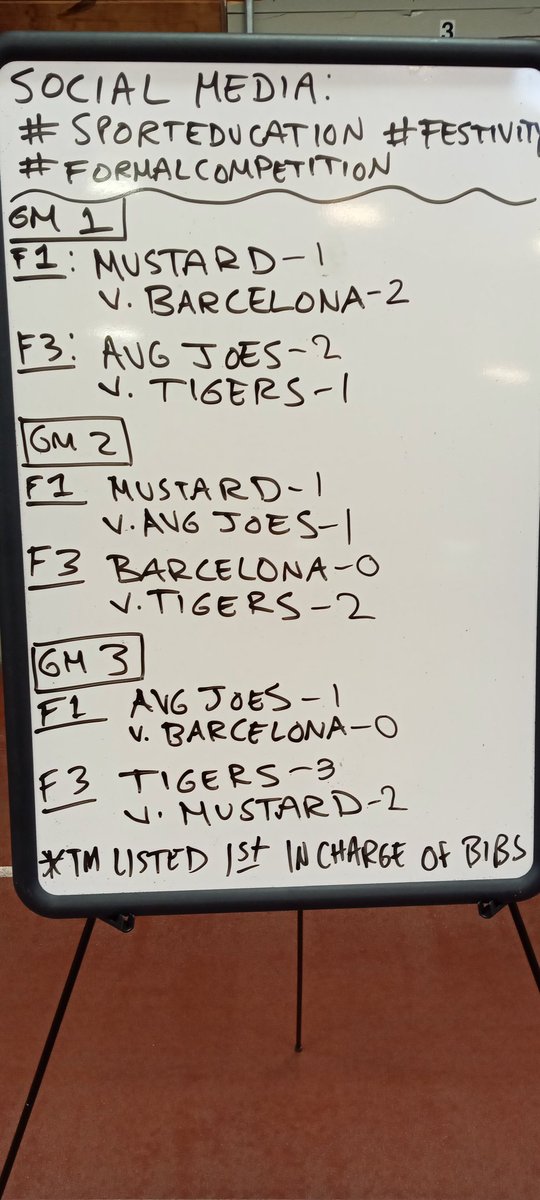 3
SOCIAL MEDIA:
# SPORTEDUCATION #FESTIVITY
# FORMALCOMPETITION
GM 1
F1: MUSTARD-1
V. BARCELONA-2
F3: AVG JOES-2
V. TIGERS-1
GM 2
F1 MUSTARD-1
V. AVG JOES-1
F3 BARCELONA-0
V. TIGERS-2
GM 3
F1 AVG JOES-1
V. BARCELONA-0
F3 TIGERS-3
V. MUSTARD-2
*TM LISTED 1st IN CHARGE OF BIBS